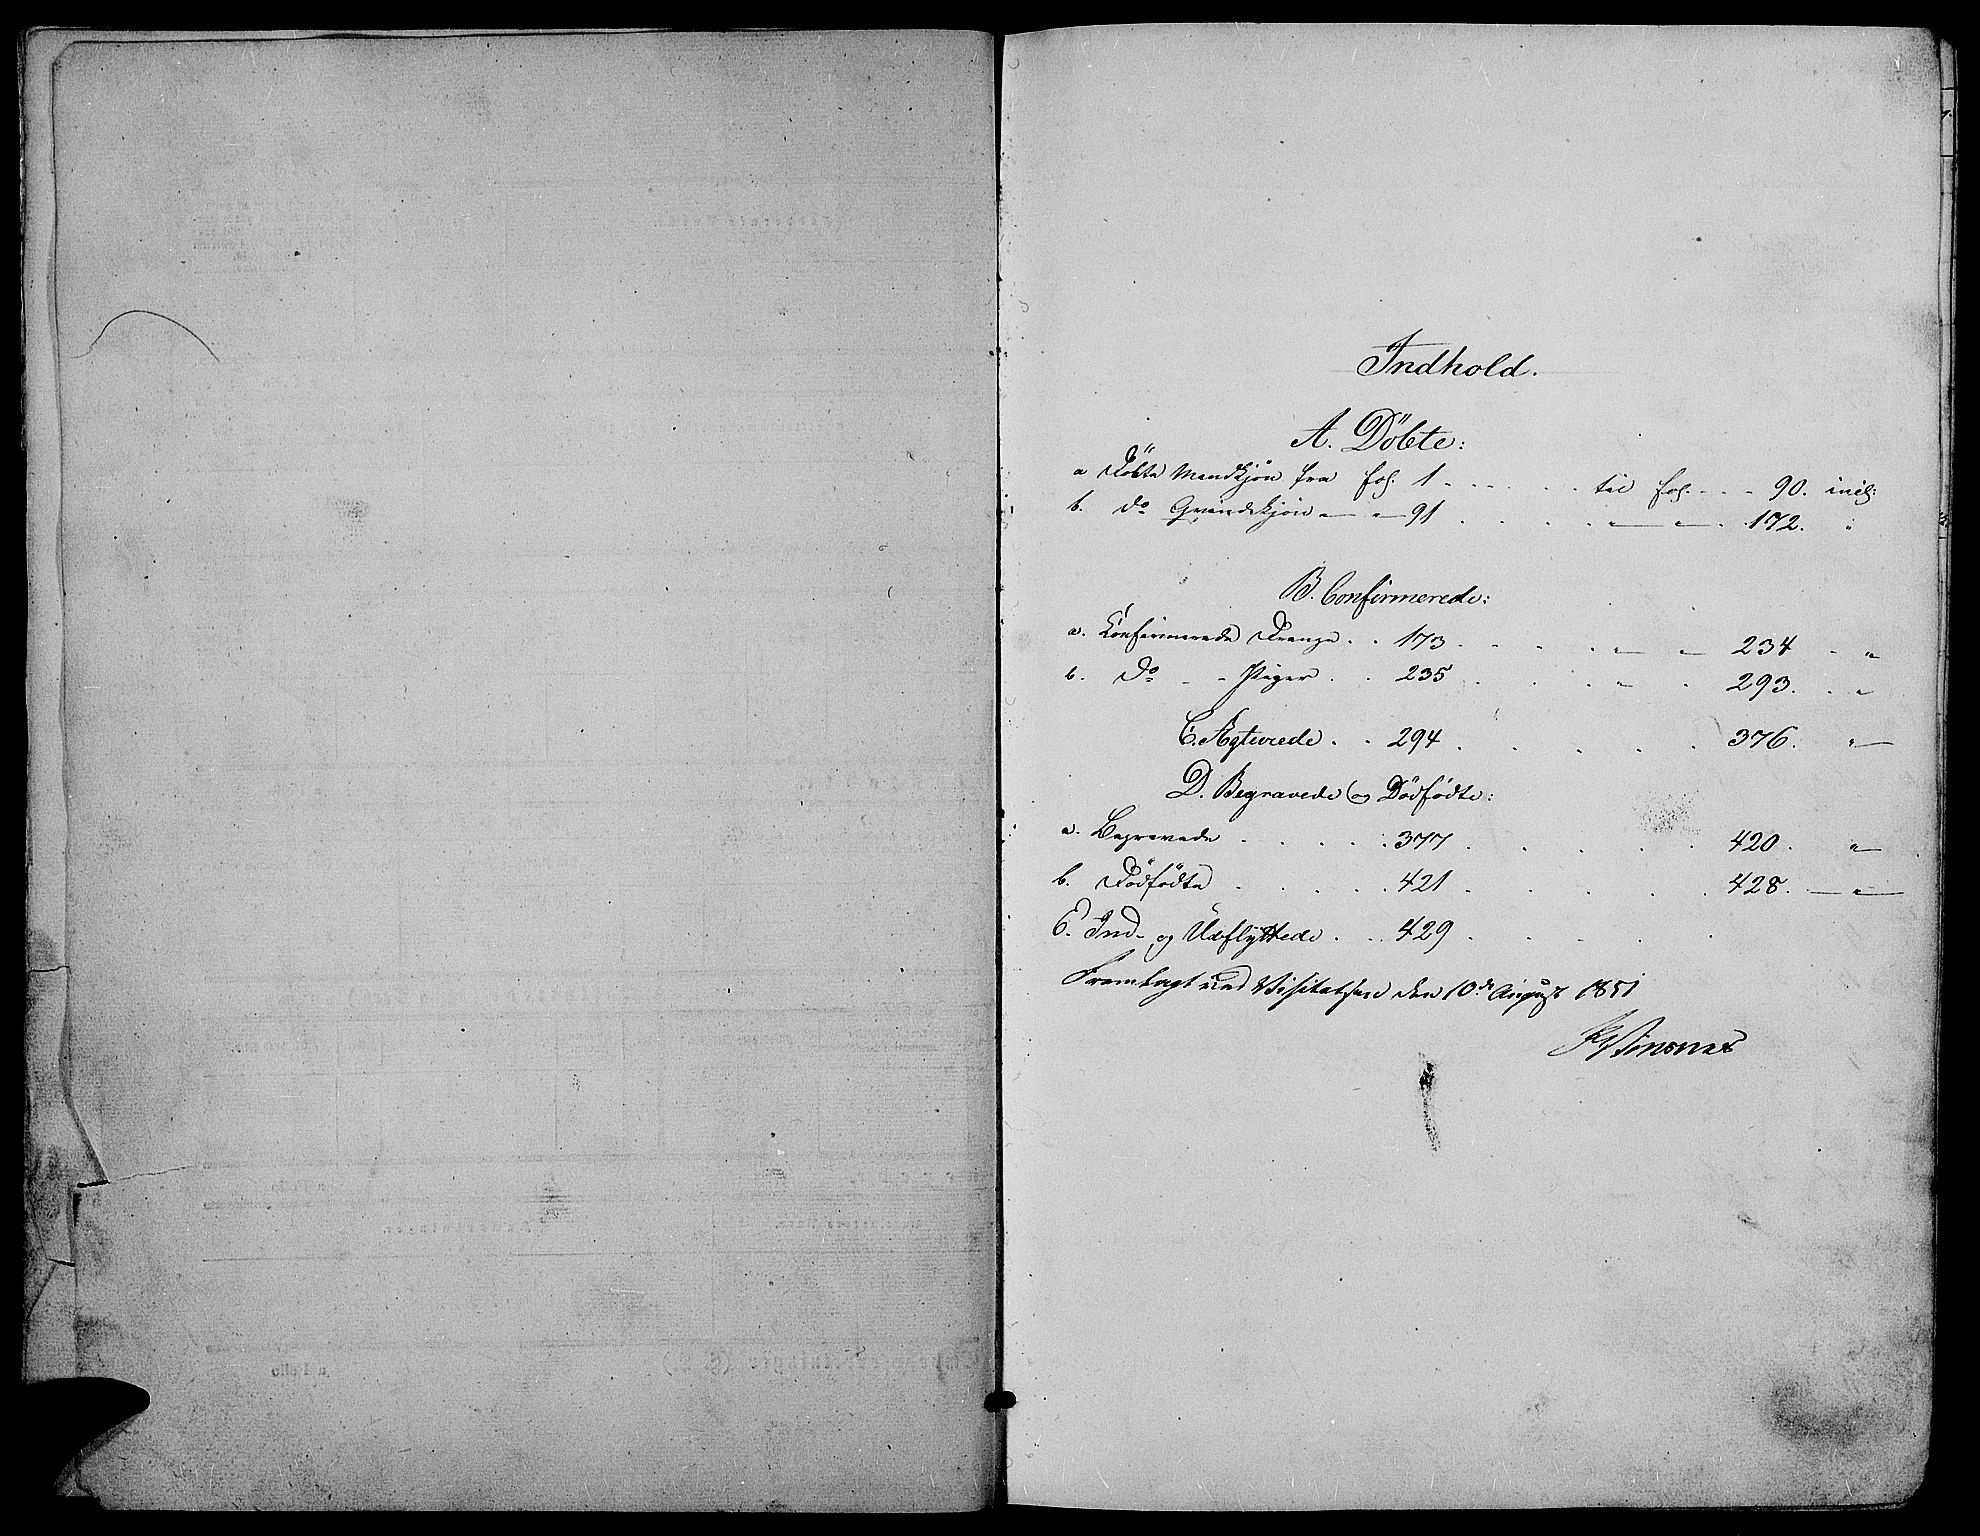 Indhold.
A. Döbte:
a Döbte Mandkjøn fra fol. 1 - - - - - til fol. - - - 90. incl:
b. do Qvindekjön — " — " — 91 . . . . — " — — " — . 172. "
B. Confirmerede:
a. Confirmerede Drenge . . 173 . . . . — " — — " — 234 - "
b. do - - Piger . . 235 . . . — " — . 293. . "
C. Ægteviede . . 294 . . . . . 376. — " —
D. Begravede og Dödfödte:
a. Begravede . . . . . 377 . . . . . 420. — " — .
b. Dödfödte . . . . . 421 . . . . . 428. — " —
E. Ind- og Udflyttede . . . 429 . . . . .
Fremlagt ved Visitatsen den 10de August 1851